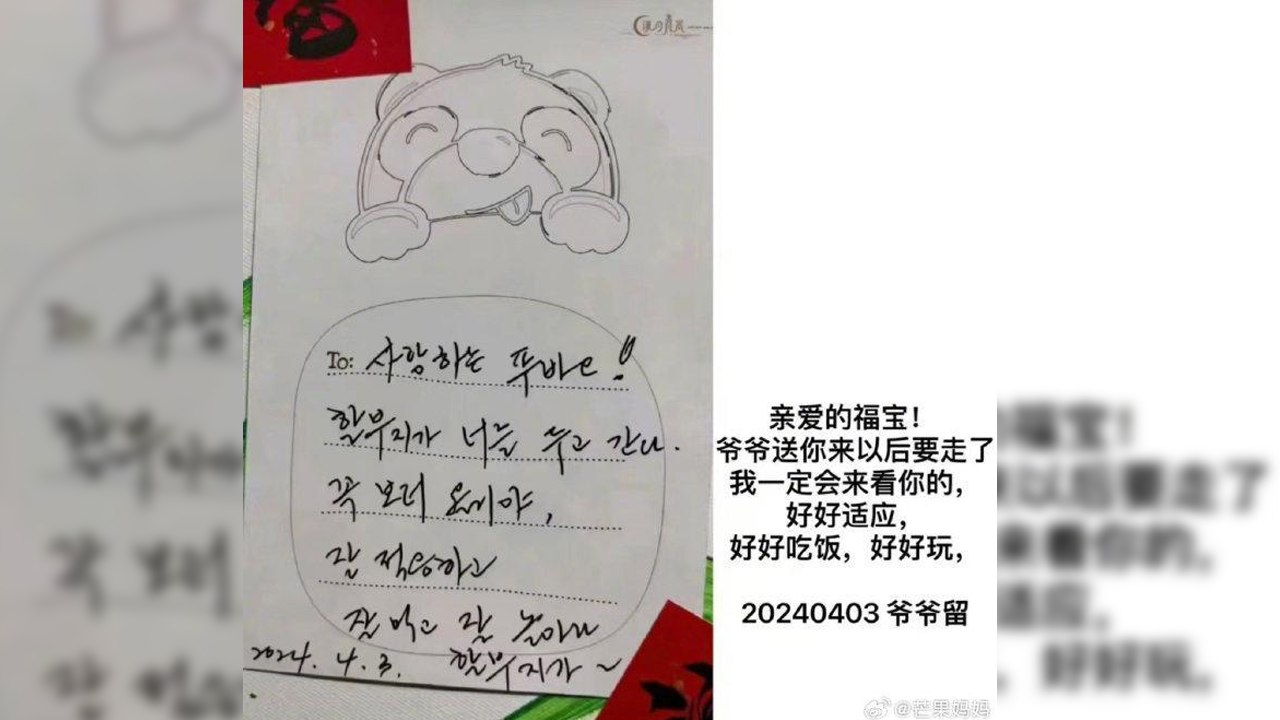 To: 사랑하는 푸바오!
할부지가 너를 두고 간다.
꼭 보러 올게야,
잘 적응하고
잘 먹고 잘 놀아라
2024. 4. 3. 할부지가 ~
亲爱的福宝！
爷爷送你来以后要走了
我一定会来看你的，
好好适应，
好好吃饭，好好玩，
20240403 爷爷留
@芒果妈妈